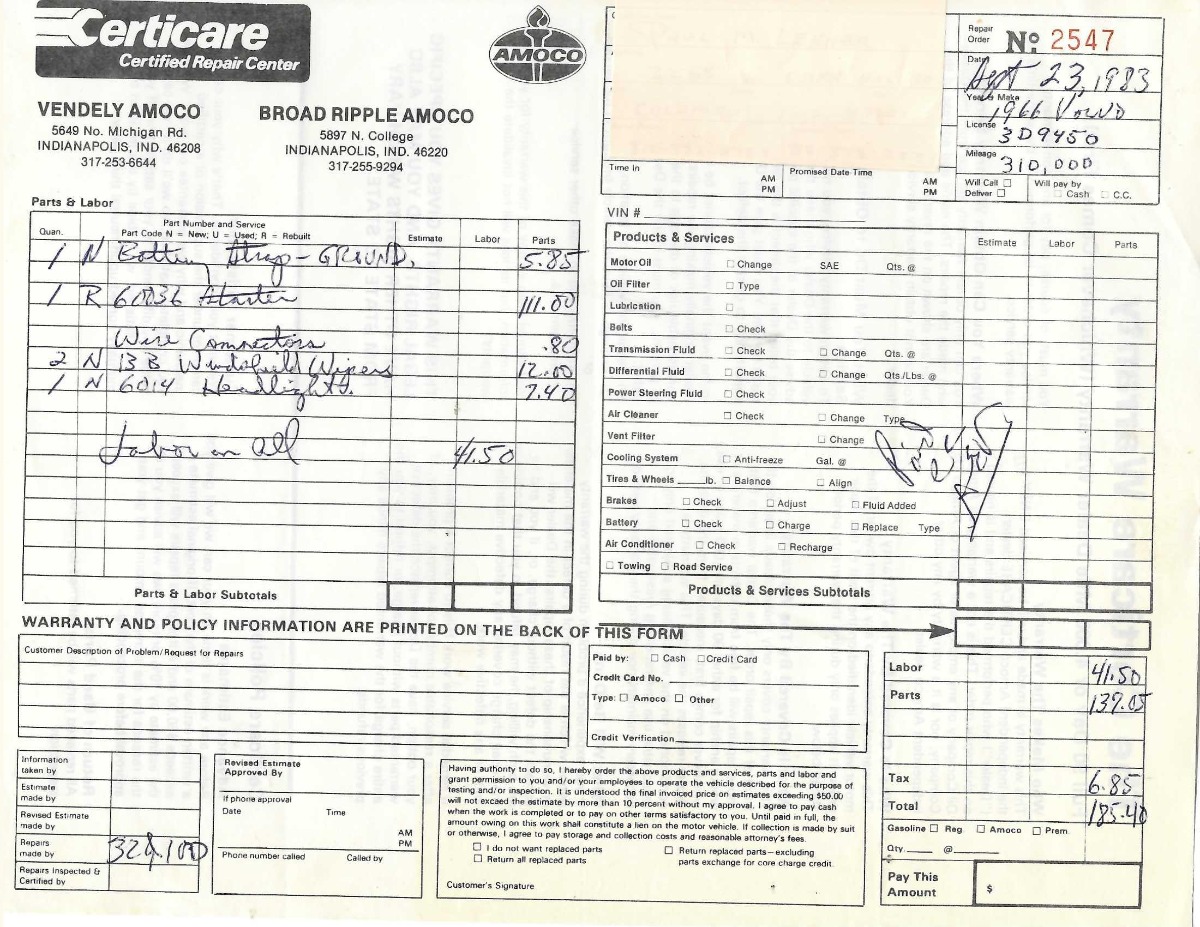 Certicare
Certified Repair Center
AMOCO
VENDELY AMOCO
5649 No. Michigan Rd.
INDIANAPOLIS, IND. 46208
317-253-6644
BROAD RIPPLE AMOCO
5897 N. College
INDIANAPOLIS, IND. 46220
317-255-9294
Repair Order No 2547
Date Sept 23, 1983
Year & Make 1966 Volvo
License 3D9450
Mileage 310,000
Time In AM PM
Promised Date-Time AM PM
Will Call □ Deliver □
Will pay by □ Cash □ C.C.
VIN #
Parts & Labor
Quan. Part Number and Service Part Code N = New; U = Used; R = Rebuilt Estimate Labor Parts
1 N Battery Strap - GROUND, 5.85
1 R 60036 Starter 111.00
Wire Connectors .80
2 N 13 B Windshield Wipers 12.00
1 N 6014 Headlight 7.40
Labor on All 41.50
Parts & Labor Subtotals
Products & Services Estimate Labor Parts
Motor Oil □ Change SAE Qts. @
Oil Filter □ Type
Lubrication □
Belts □ Check
Transmission Fluid □ Check □ Change Qts. @
Differential Fluid □ Check □ Change Qts./Lbs. @
Power Steering Fluid □ Check
Air Cleaner □ Check □ Change Type
Vent Filter □ Change
Cooling System □ Anti-freeze Gal. @
Tires & Wheels lb. □ Balance □ Align
Brakes □ Check □ Adjust □ Fluid Added
Battery □ Check □ Charge □ Replace Type
Air Conditioner □ Check □ Recharge
□ Towing □ Road Service
Products & Services Subtotals
WARRANTY AND POLICY INFORMATION ARE PRINTED ON THE BACK OF THIS FORM
Customer Description of Problem/Request for Repairs
Paid by: □ Cash □ Credit Card
Credit Card No.
Type: □ Amoco □ Other
Credit Verification
Labor 41.50
Parts 137.05
Tax 6.85
Total 185.40
Gasoline □ Reg □ Amoco □ Prem
Qty. @
Pay This Amount $
Information taken by
Estimate made by
Revised Estimate made by
Repairs made by
Repairs Inspected & Certified by
Revised Estimate Approved By
If phone approval
Date Time
AM
PM
Phone number called Called by
Having authority to do so, I hereby order the above products and services, parts and labor and
grant permission to you and/or your employees to operate the vehicle described for the purpose of
testing and/or inspection. It is understood the final invoiced price on estimates exceeding $50.00
will not exceed the estimate by more than 10 percent without my approval. I agree to pay cash
when the work is completed or to pay on other terms satisfactory to you. Until paid in full, the
amount owing on this work shall constitute a lien on the motor vehicle. If collection is made by suit
or otherwise, I agree to pay storage and collection costs and reasonable attorney's fees.
□ I do not want replaced parts
□ Return all replaced parts
□ Return replaced parts—excluding
parts exchange for core charge credit.
Customer's Signature